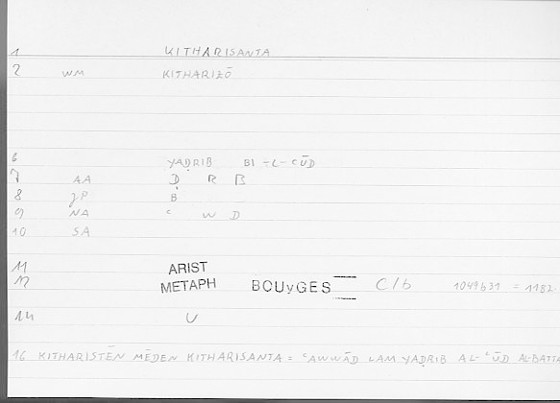 1 KITHARISANTA
2 WM KITHARIZŌ
6 YAḌRIB BI-L-ʿŪD
7 AA Ḍ R B
8 JP B
9 NA ʿ W D
10 SA
11 ARIST
12 METAPH BOUYGES C/b 1049b31 = 1182.
14 U
16 KITHARISTĒN MĒDEN KITHARISANTA = ʿAWWĀD LAM YAḌRIB AL-ʿŪD AL-BATTA